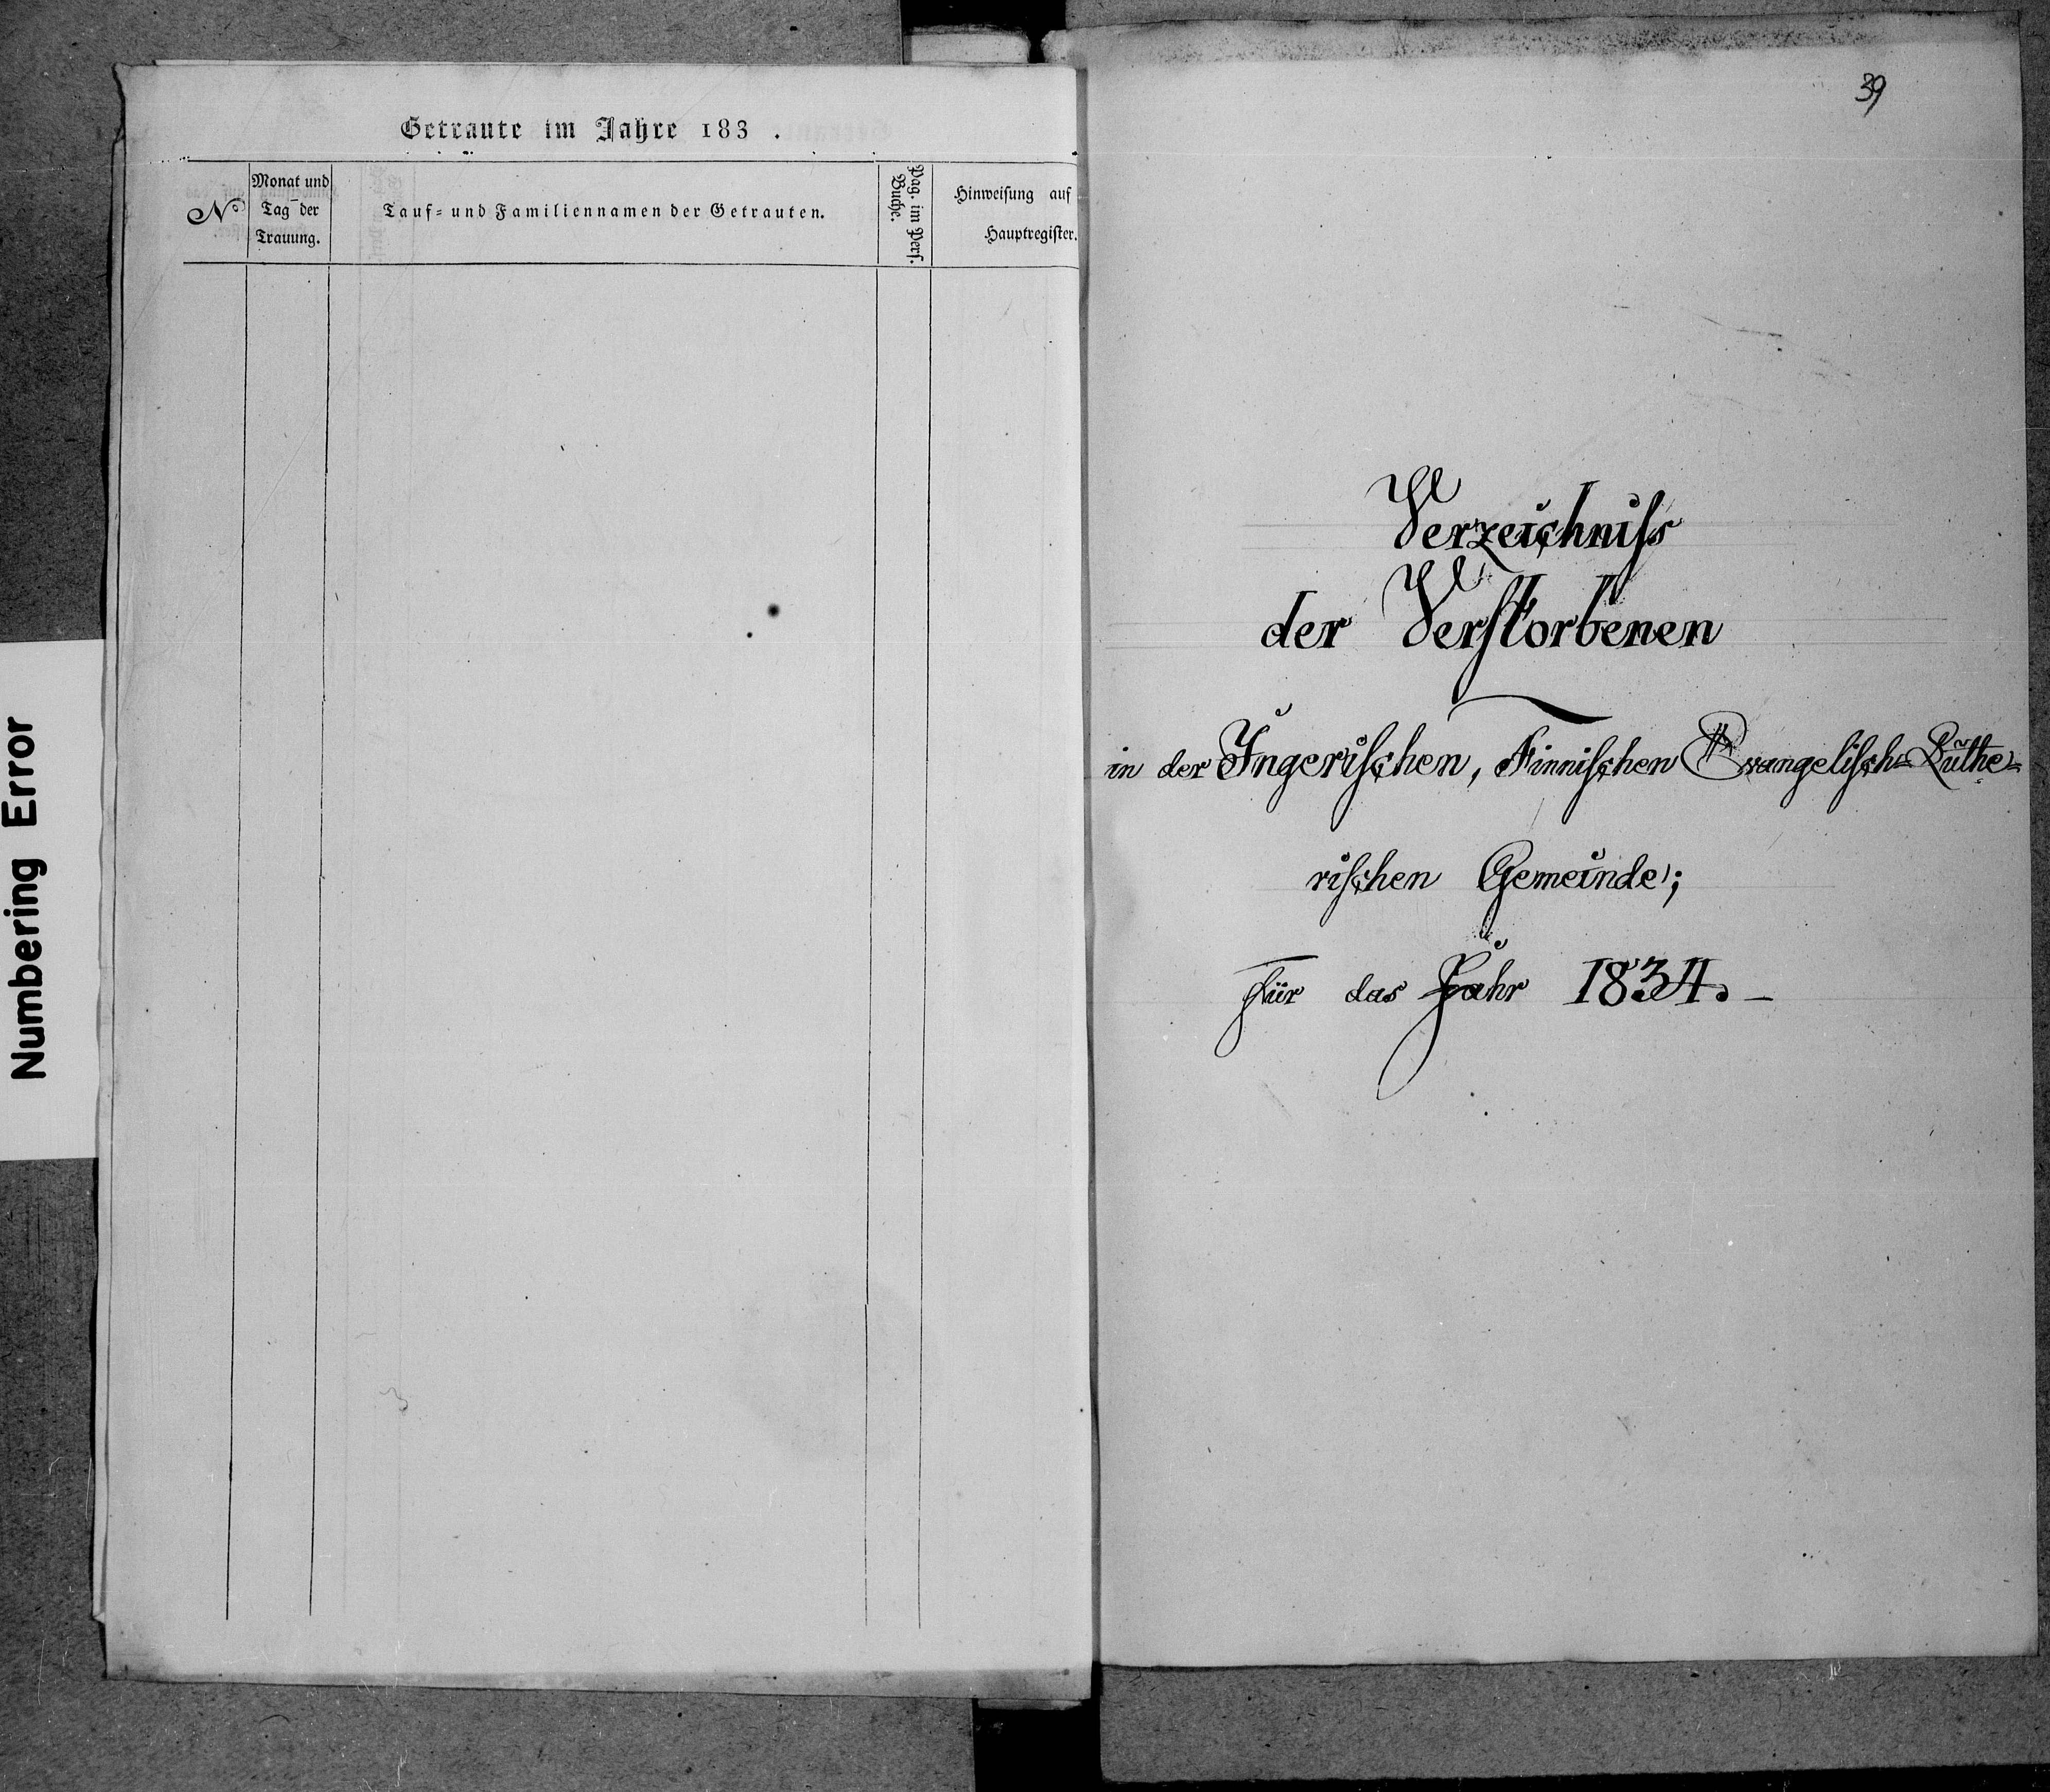 Numbering Error
Getraute im Jahre 183 .
No
Monat und
Tag der
Trauung.
Tauf- und Familiennamen der Getrauten.
Pag. im Pers.
Buche.
Hinweisung auf
Hauptregister.
39
Verzeichniss
der Verstorbenen
in der Ingerischen, Finnischen Evangelisch-Luthe-
rischen Gemeinde;
für das Jahr 1834. –